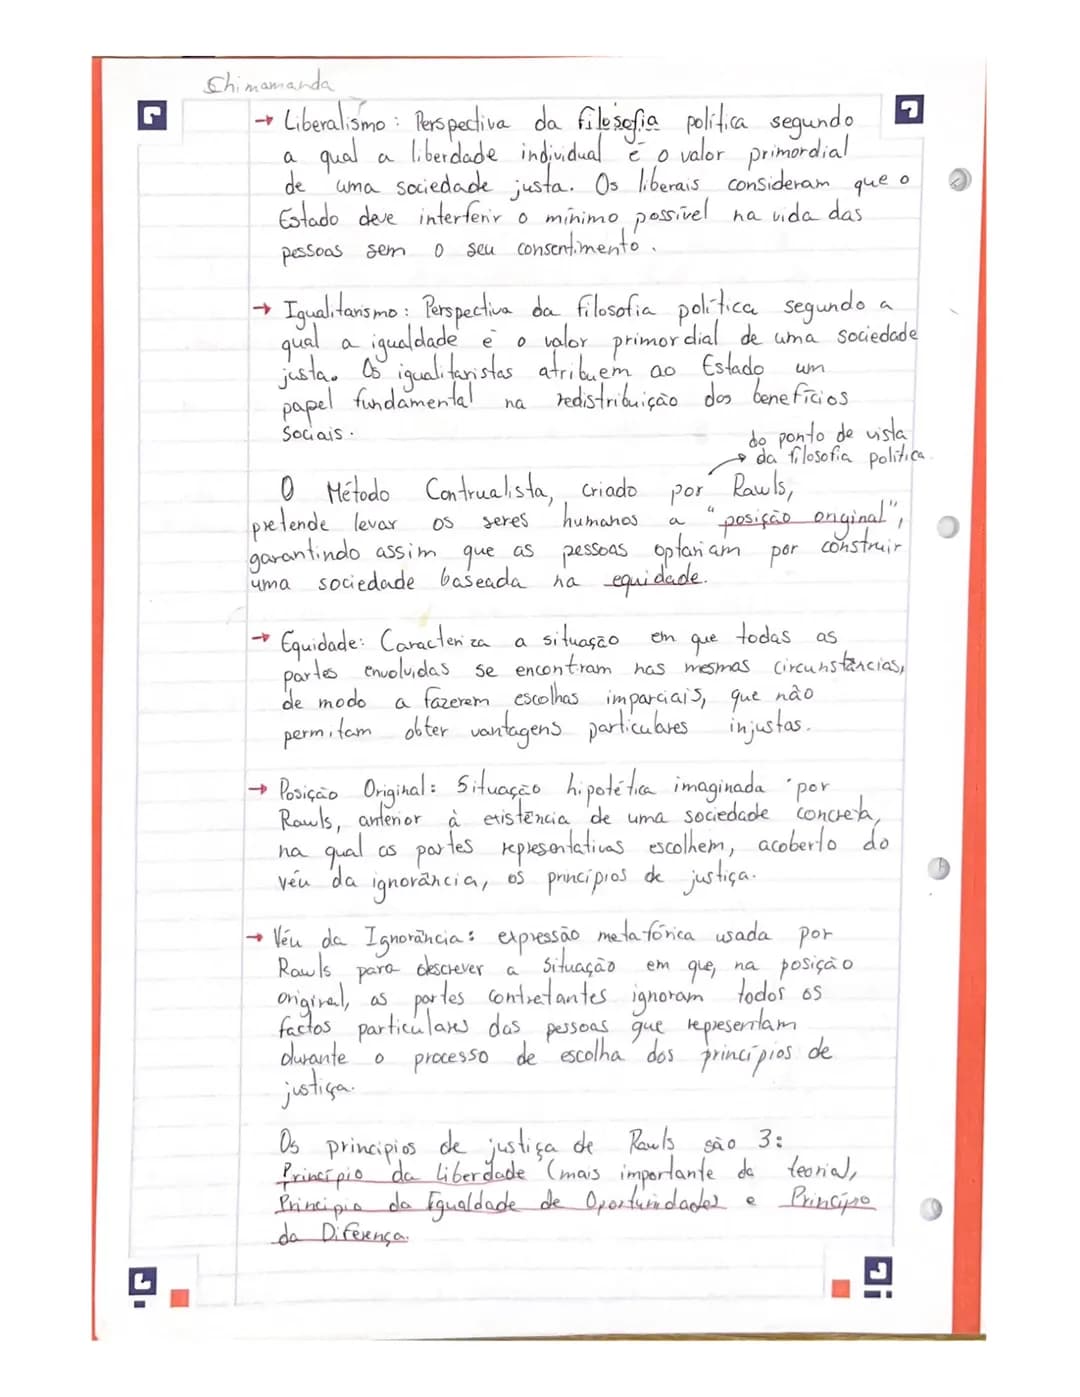 Chimamanda
→ Liberalismo: Perspectiva da filosofia política segundo
a qual a liberdade individual é o valor primordial
de uma sociedade justa. Os liberais consideram que o
Estado deve interferir o mínimo possível na vida das
pessoas sem o seu consentimento.
→ Igualitarismo: Perspectiva da filosofia política segundo a
qual a igualdade é o valor primordial de uma sociedade
justa. Os igualitaristas atribuem ao Estado um
papel fundamental na redistribuição dos benefícios
sociais.
do ponto de vista
→ da filosofia política.
O Método Contrualista, criado por Rawls,
pretende levar os seres humanos a "posição original",
garantindo assim que as pessoas optariam por construir
uma sociedade baseada na equidade.
→ Equidade: Caracteriza a situação em que todas as
partes envolvidas se encontram nas mesmas circunstâncias,
de modo a fazerem escolhas imparciais, que não
permitam obter vantagens particulares injustas.
→ Posição Original: Situação hipotética imaginada por
Rawls, anterior à existência de uma sociedade concreta,
na qual as partes representativas escolhem, acoberto do
véu da ignorância, os princípios de justiça.
→ Véu da Ignorância: expressão metafórica usada por
Rawls para descrever a situação em que, na posição
original, as partes contretantes ignoram todos os
factos particulares das pessoas que representam
durante o processo de escolha dos princípios de
justiça.
Os principios de justiça de Rawls são 3:
Princípio da Liberdade (mais importante da teoria),
Principio da Igualdade de Oportunidades e Princípio
da Diferença.